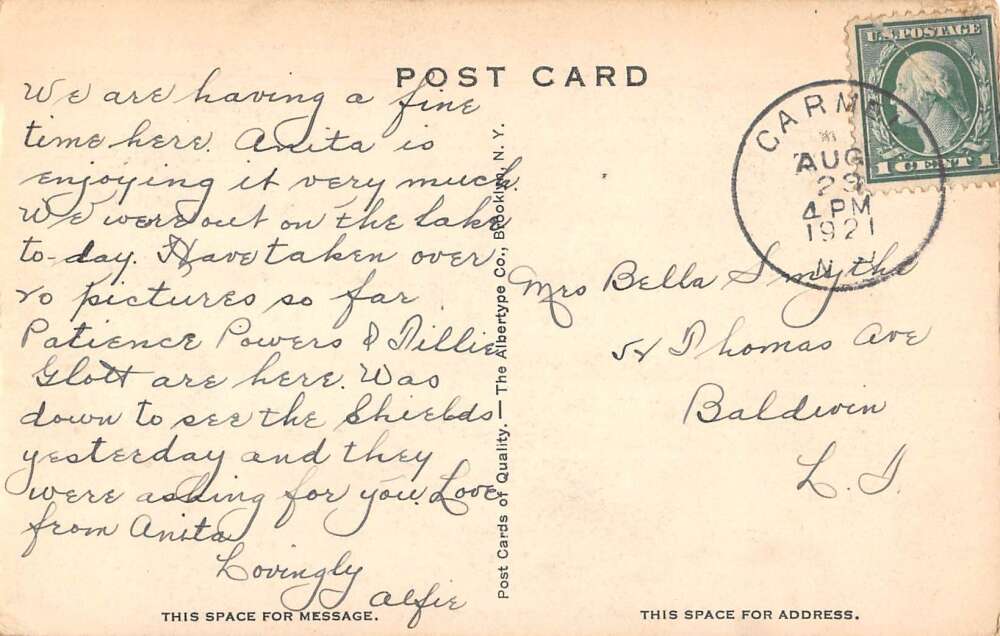 POST CARD
We are having a fine
time here. Anita is
enjoying it very much.
We were out on the lake
to-day. Have taken over
20 pictures so far
Patience Powers & Tillie
Glott are here. Was
down to see the Shields
yesterday and they
were asking for you. Love
from Anita
Lovingly
Alfie
THIS SPACE FOR MESSAGE.
Post Cards of Quality. — The Albertype Co., Brooklyn, N. Y.
U.S. POSTAGE
1 CENT 1
CARMEL
AUG
23
4 PM
1921
N.Y.
Mrs Bella Smythe
Thomas Ave
Baldwin
L. I.
THIS SPACE FOR ADDRESS.